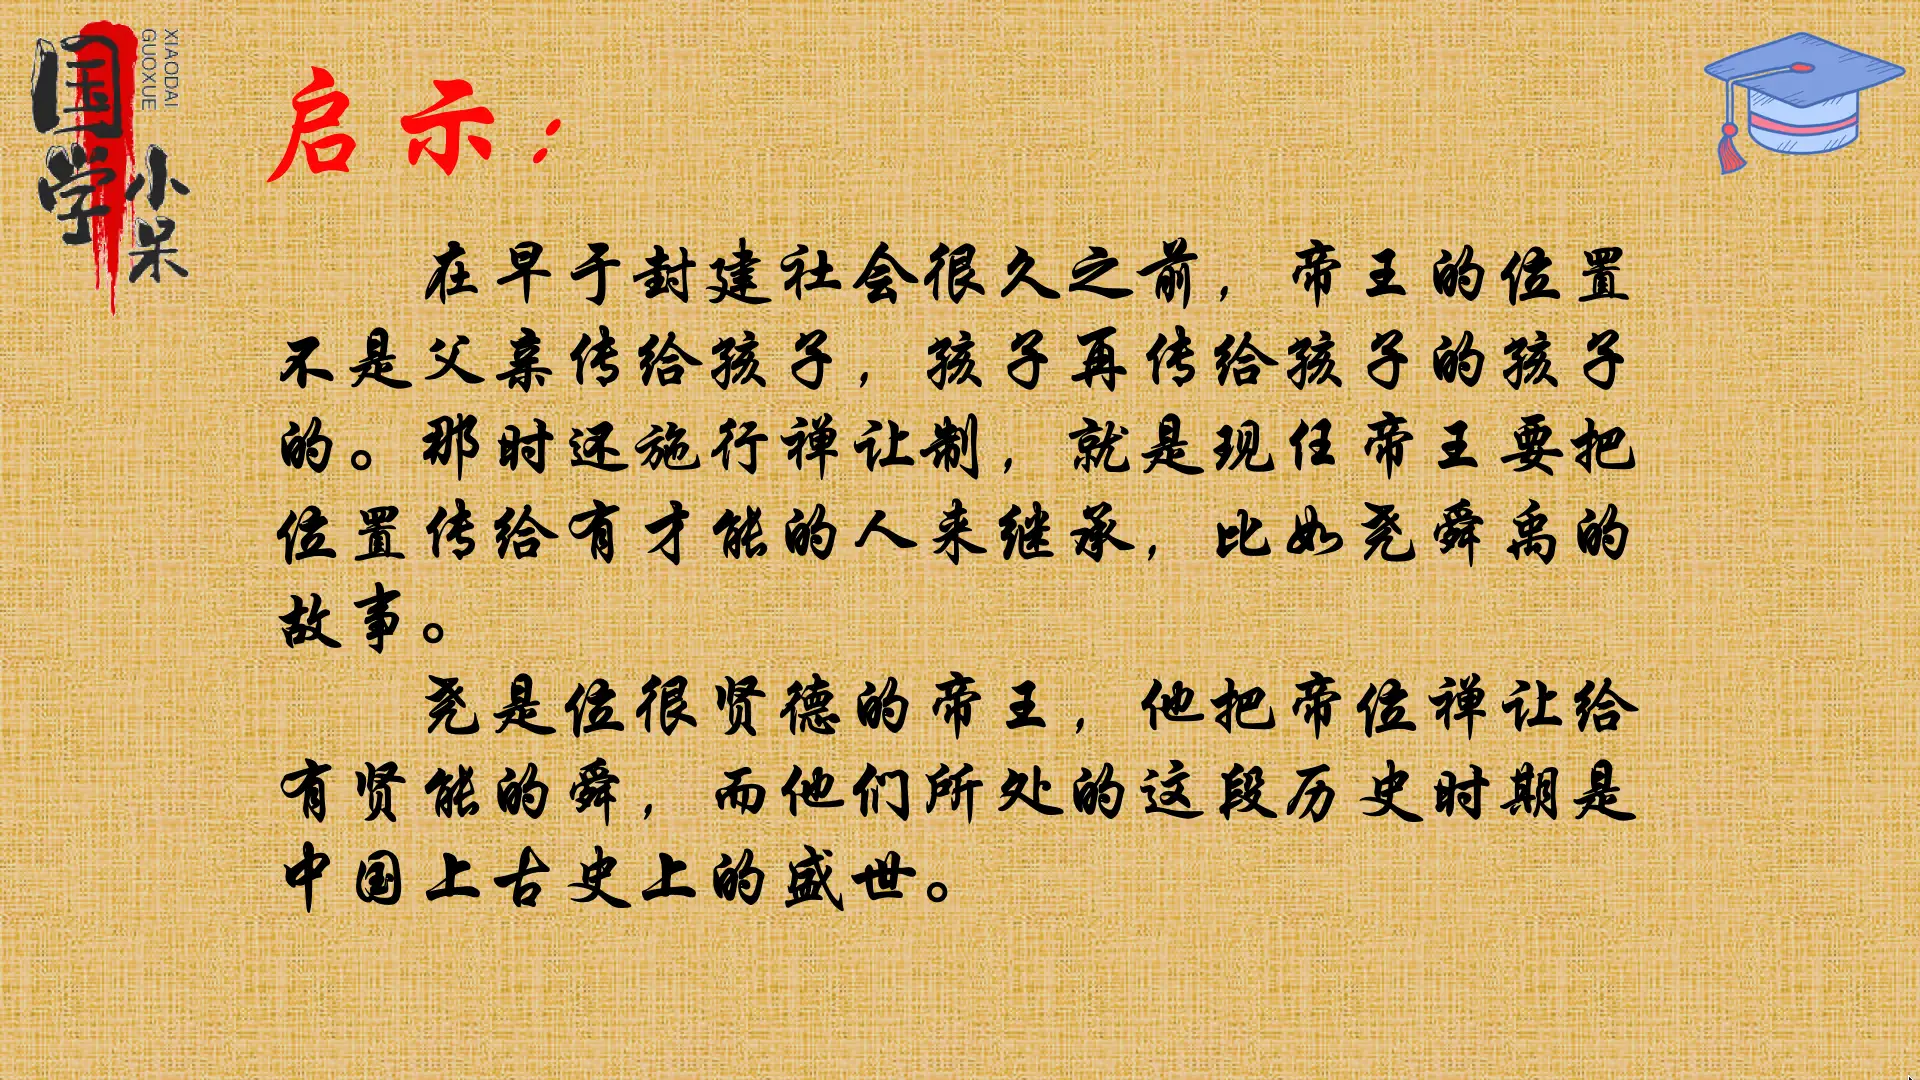 国学
小呆
XIAODAI
GUOXUE
启示：
在早于封建社会很久之前，帝王的位置
不是父亲传给孩子，孩子再传给孩子的孩子
的。那时还施行禅让制，就是现任帝王要把
位置传给有才能的人来继承，比如尧舜禹的
故事。
尧是位很贤德的帝王，他把帝位禅让给
有贤能的舜，而他们所处的这段历史时期是
中国上古史上的盛世。